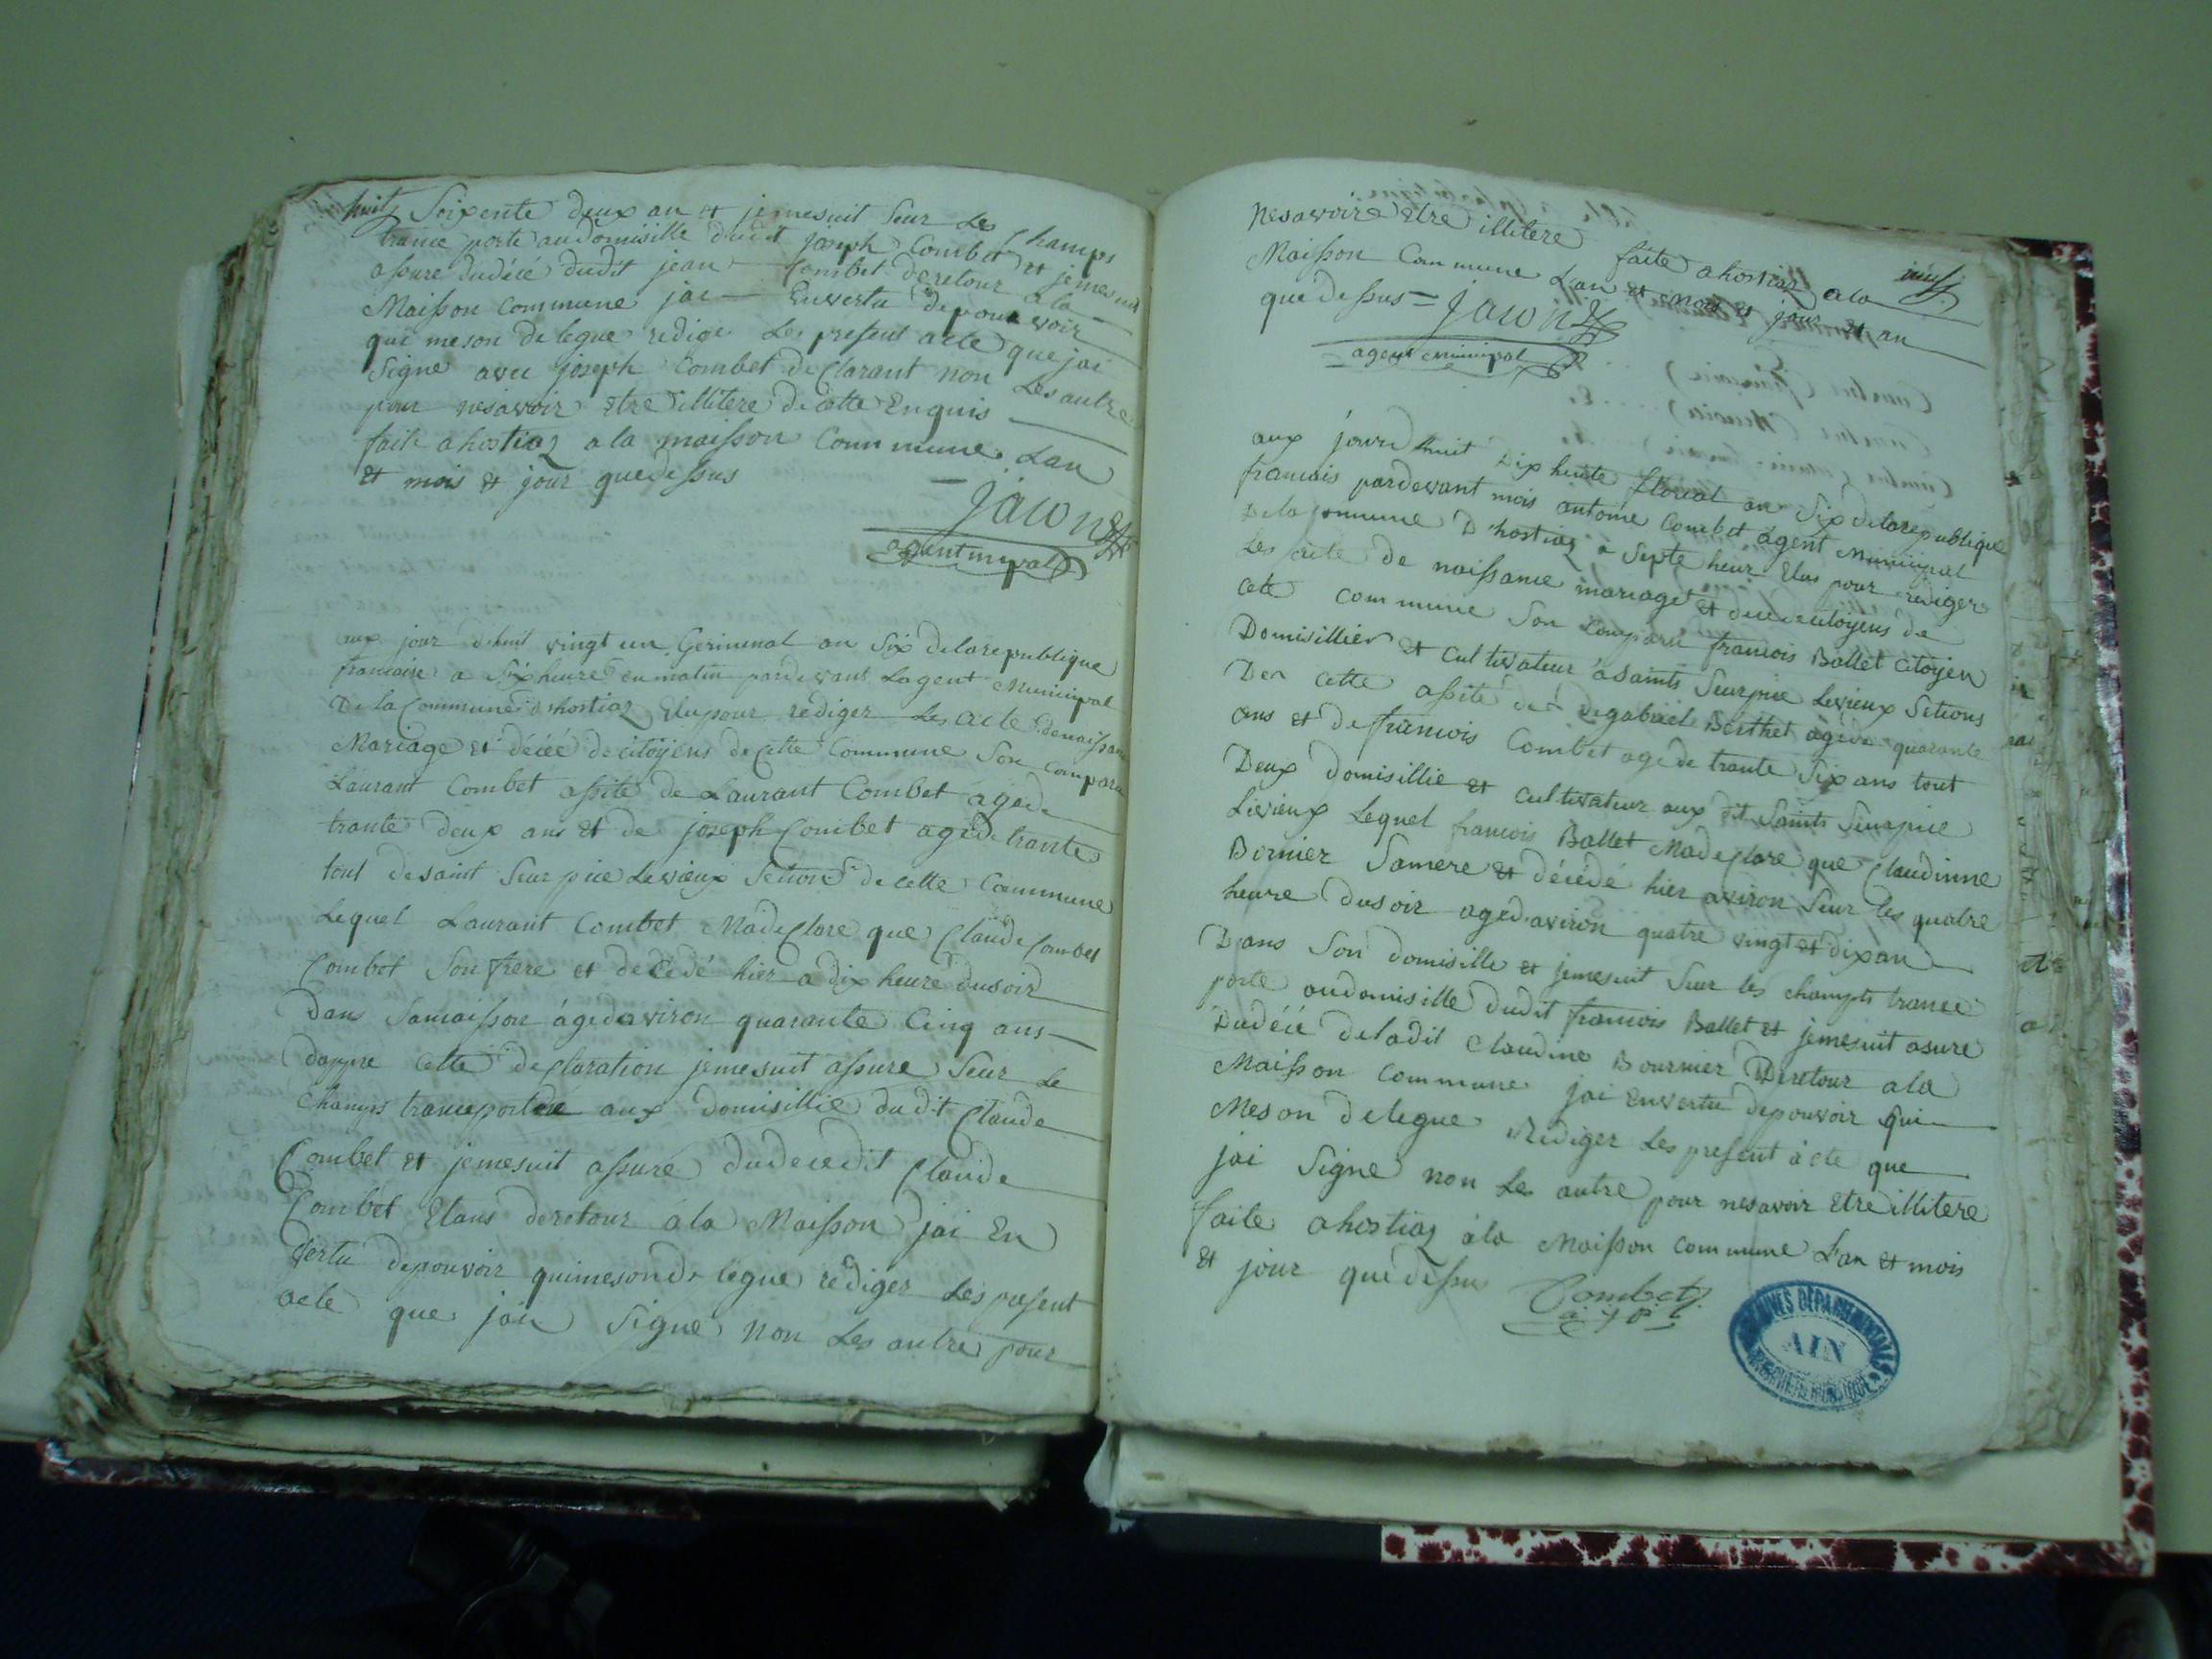 huit Soixente deux an et jemesuit Seur Les Champs
trance porte audomisille dudit joseph Combet et jemesuit
assure dudécé dudit jean Combet deretour ala
Maisson Commune jai Envertu depouvoir
qui meson delegue redige Les present acte que jai
Signe avec joseph Combet declarant non Les autre
pour nesavoir Etre illitere de cette Enquis
faite ahostiaz ala maisson Commune Lan
et mois et jour quedessus
Jacon
agentmipal
aux jour dhuit vingt un Germinal an Six delarepublique
francaise a Six heure du matin pardevant Lagent Municipal
De la Commune dhostiaz Elu pour rediger Les acte denaissance
Mariage et décéé decitoÿens decette Commune Son Comparu
Laurant Combet assité de Laurant Combet agéde
trante deux ans et de joseph Combet agéde trante
tout desaint Seurpice Levieux Setions de cette Commune
Lequel Laurant Combet Madeclare que Claude Combet
Combet Son frere et decédé hier a dix heure dusoir
dans Samaisson ágedaviron quarante Cinq ans
dappre cette declaration jemesuit assure Seur Le
Champs tranceportée aux domisillie dudit Claude
Combet et jemesuit assuré dudecedit Claude
Combet Etans deretour ála Maisson jai En
Vertu depouvoir quimeson delegue rédiger Les present
acte que jai Signé non Les autre pour
nesavoire Etre illitere faite ahostiaz ala
Maisson Commune Lan et mois et jour et an
que dessus = Jacon
agent municipal
neuf
aux jourdhuit dix huite floreal an Six delarepublique
francais pardevant mois antoine Combet agent Municipal
Delacommune D'hostiaz a Septe heur Elus pour rediger
Les acte de naissance mariage et décée citoyens de
cete commune Son Comparu francois Ballet Citoÿen
Domisillier et cultivateur asaints Seurpice Levieux Setions
Den cette assité de degabriel Berthet agéde quarante
ans et defrancois Combet agede trante Six ans tout
Deux domisillie et cultivateur aux dit Saints Seurpice
Levieux Lequel francois Ballet Madeclare que Claudinne
Bornier Samere et décédé hier aviron Seur les quatre
heure dusoir agedaviron quatre vingt et dixan
Dans Son domisille et jemesuit Seur les champts trance
porte audomisille dudit francois Ballet et jemesuit asure
Dudécé deladit Claudine Bournier Deretour ala
Maisson commune jai Envertu depouvoir qui
Meson delegue Rediger Les present acte que
jai Signe non Les autre pour nesavoir Etre illitere
faite ahostiaz àla Maisson commune Lan et mois
et jour quedessu Combet
ARCHIVES DÉPARTEMENTALES
AIN